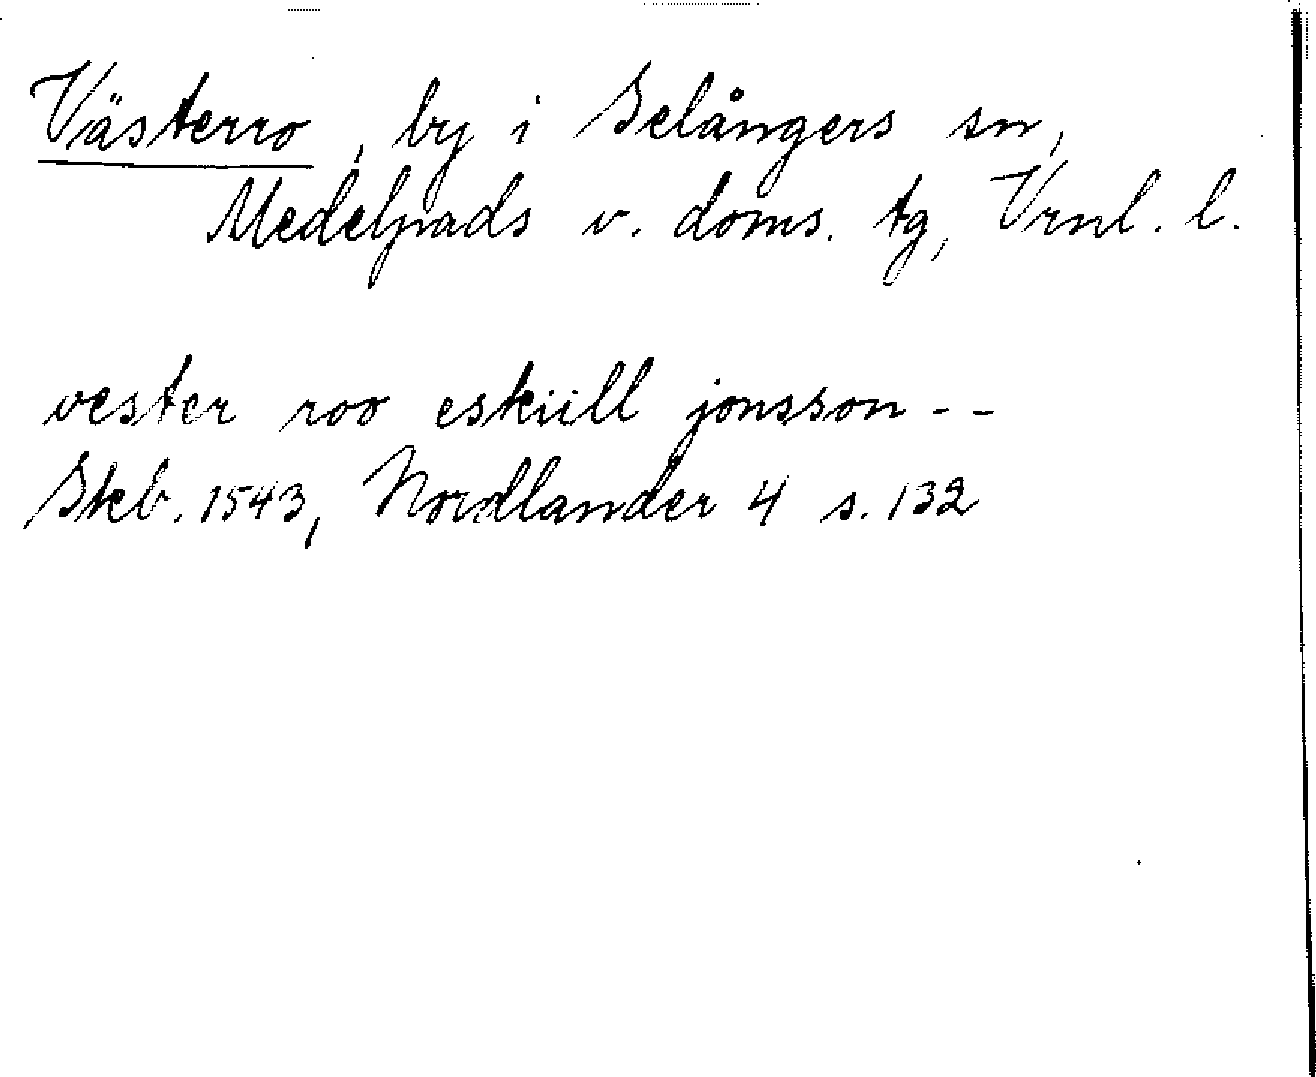 Västerro, by i Selångers sn,
Medelpads v. doms. tg, Vrnl. l.
vester roo eskiill jonsson - -
Skb. 1543, Nordlander 4 s. 132